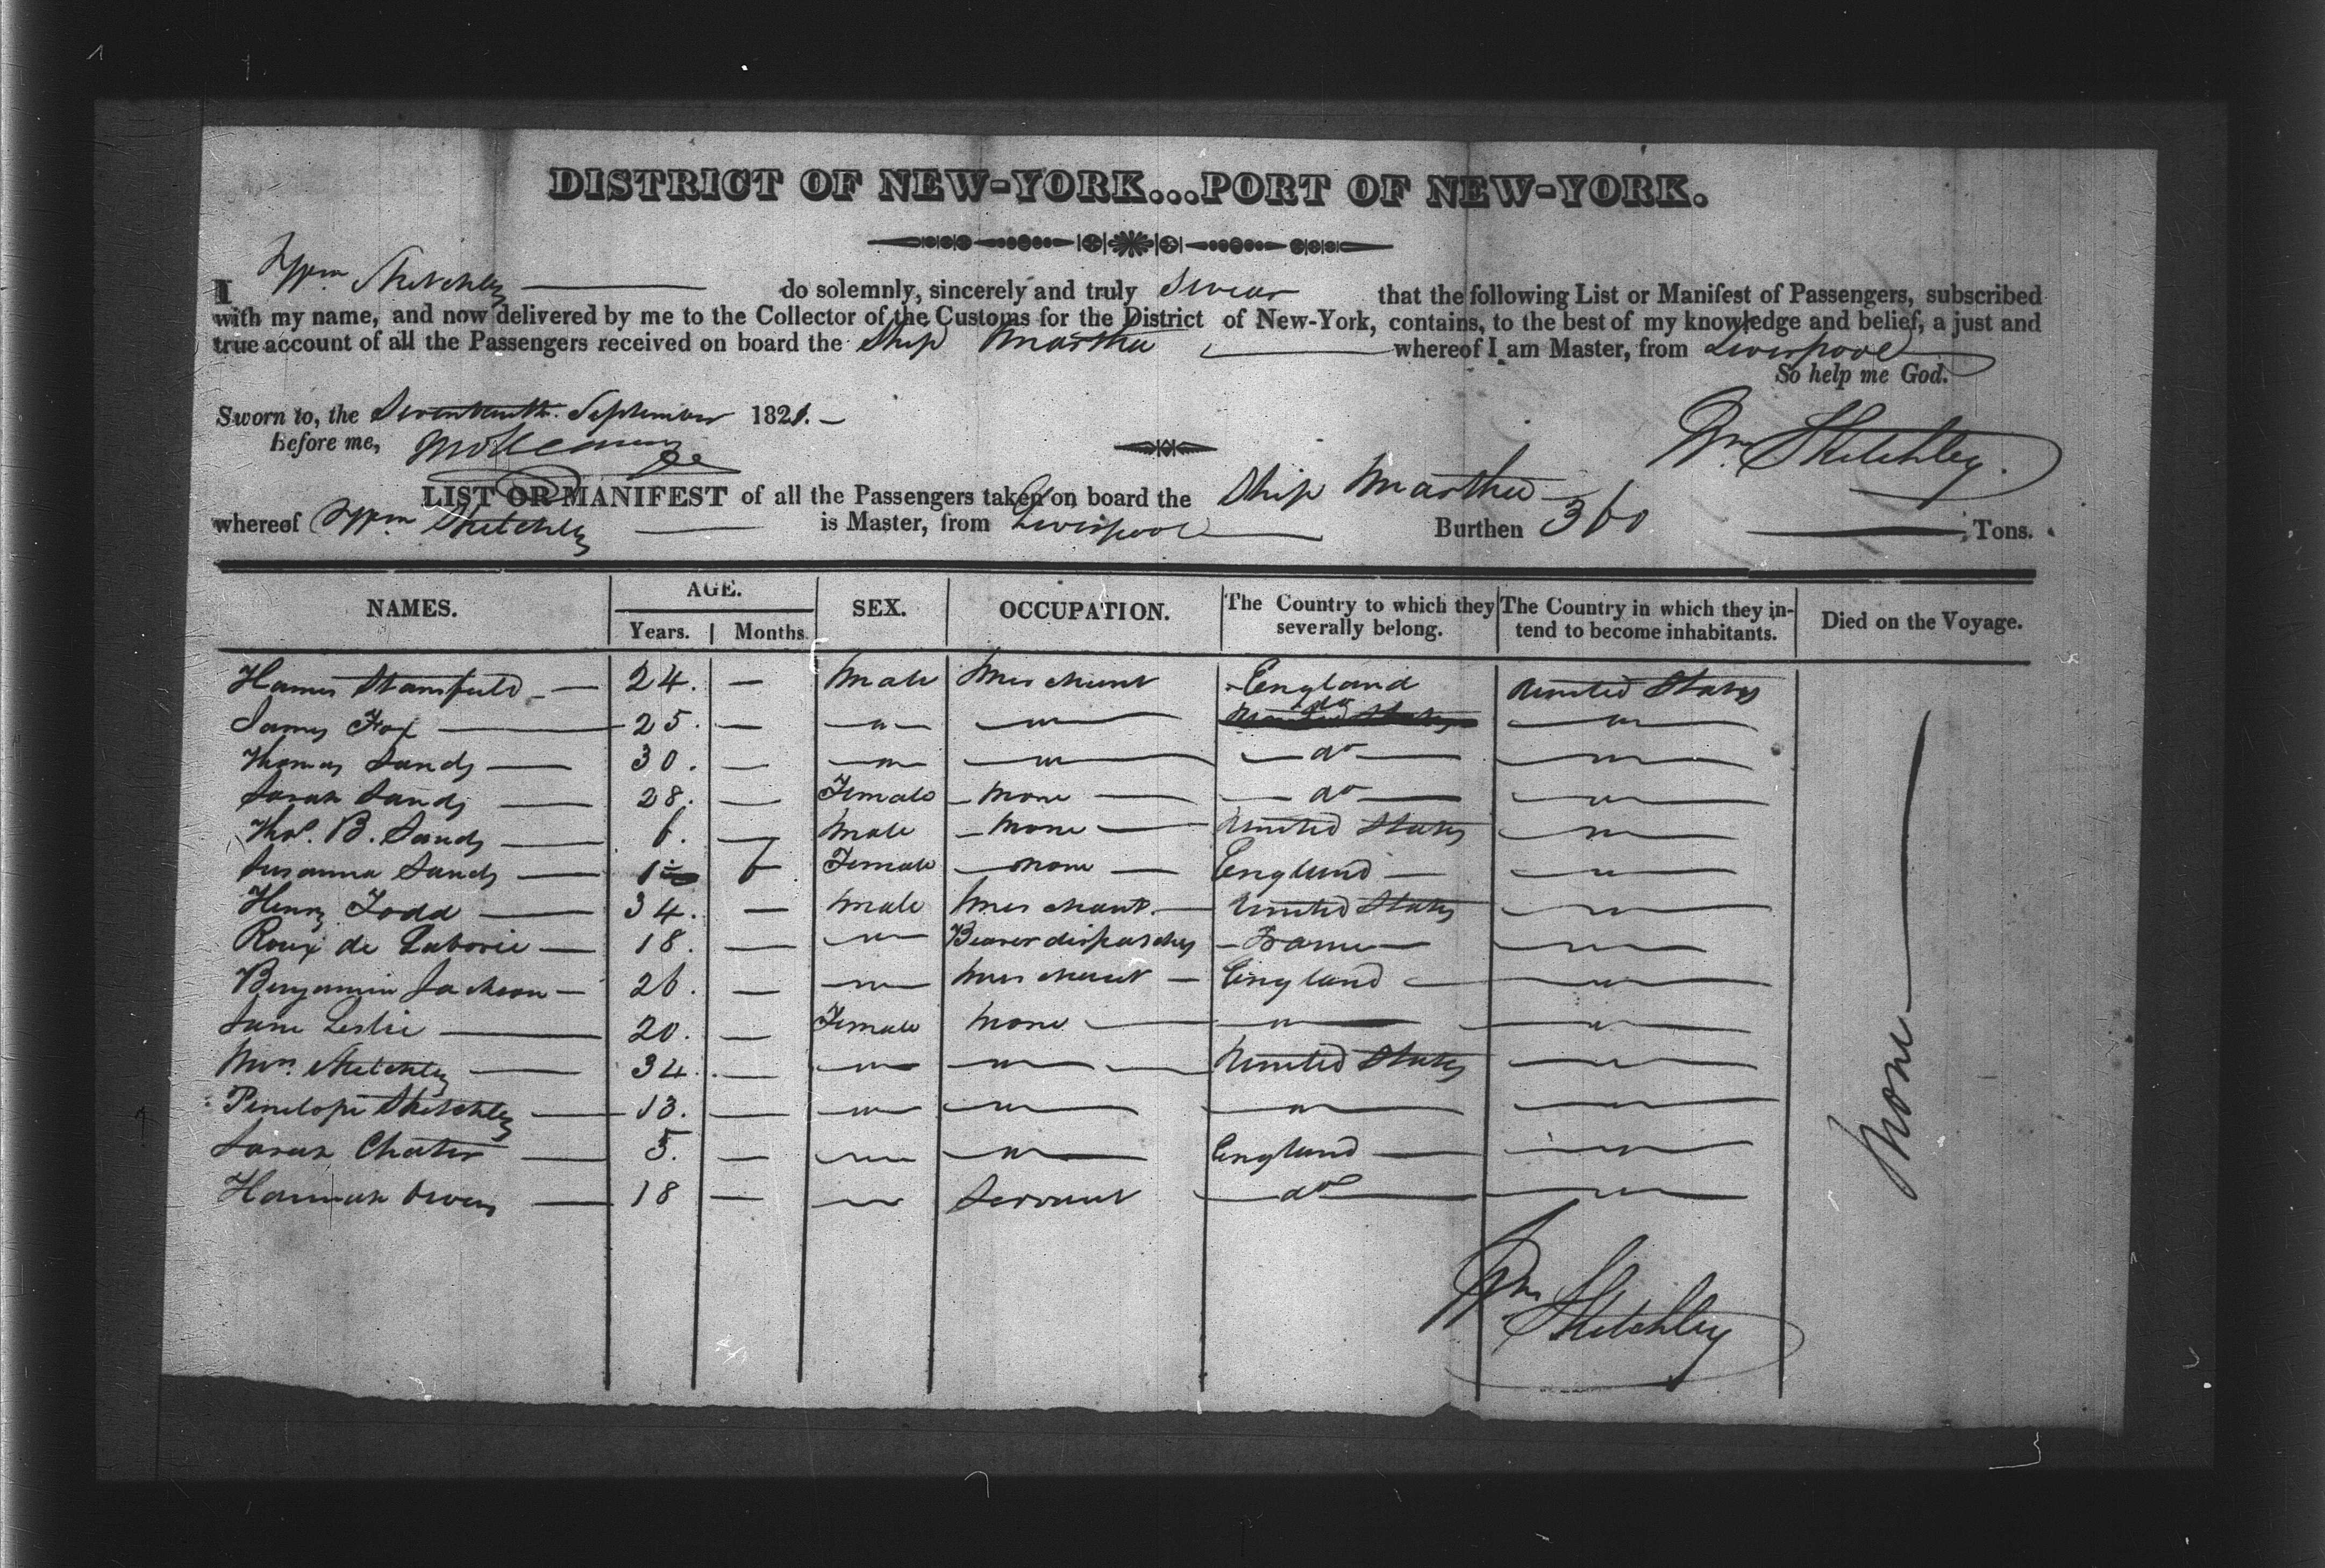 DISTRICT OF NEW-YORK...PORT OF NEW-YORK.
I Wm. Sketchley do solemnly, sincerely and truly Swear that the following List or Manifest of Passengers, subscribed
with my name, and now delivered by me to the Collector of the Customs for the District of New-York, contains, to the best of my knowledge and belief, a just and
true account of all the Passengers received on board the Ship Martha whereof I am Master, from Liverpool
So help me God.
Sworn to, the Seventeenth September 1821.
Before me,
Wm. Sketchley
LIST OR MANIFEST of all the Passengers taken on board the Ship Martha
whereof Wm. Sketchley is Master, from Liverpool Burthen 360 Tons.
NAMES. AGE. SEX. OCCUPATION. The Country to which they severally belong. The Country in which they intend to become inhabitants. Died on the Voyage.
Years. Months.
Hamer Stansfield 24. — Male Merchant England United States
James Fox 25. — " " do "
Thomas Sands 30. — " " do "
Sarah Sands 28. — Female None do "
Thos. B. Sands 6. — Male None United States "
Susanna Sands 1 6 Female None England "
Henry Todd 34. — Male Merchant United States "
Roux de Laborie 18. — " Bearer dispatches France "
Benjamin Jackson 26. — " Merchant England "
Jane Leslie 20. — Female None " "
Mrs. Sketchley 34. — " " United States "
Penelope Sketchley 13. — " " " "
Sarah Chater 5. — " " England "
Hannah Owens 18 — " Servant do "
None
Wm Sketchley